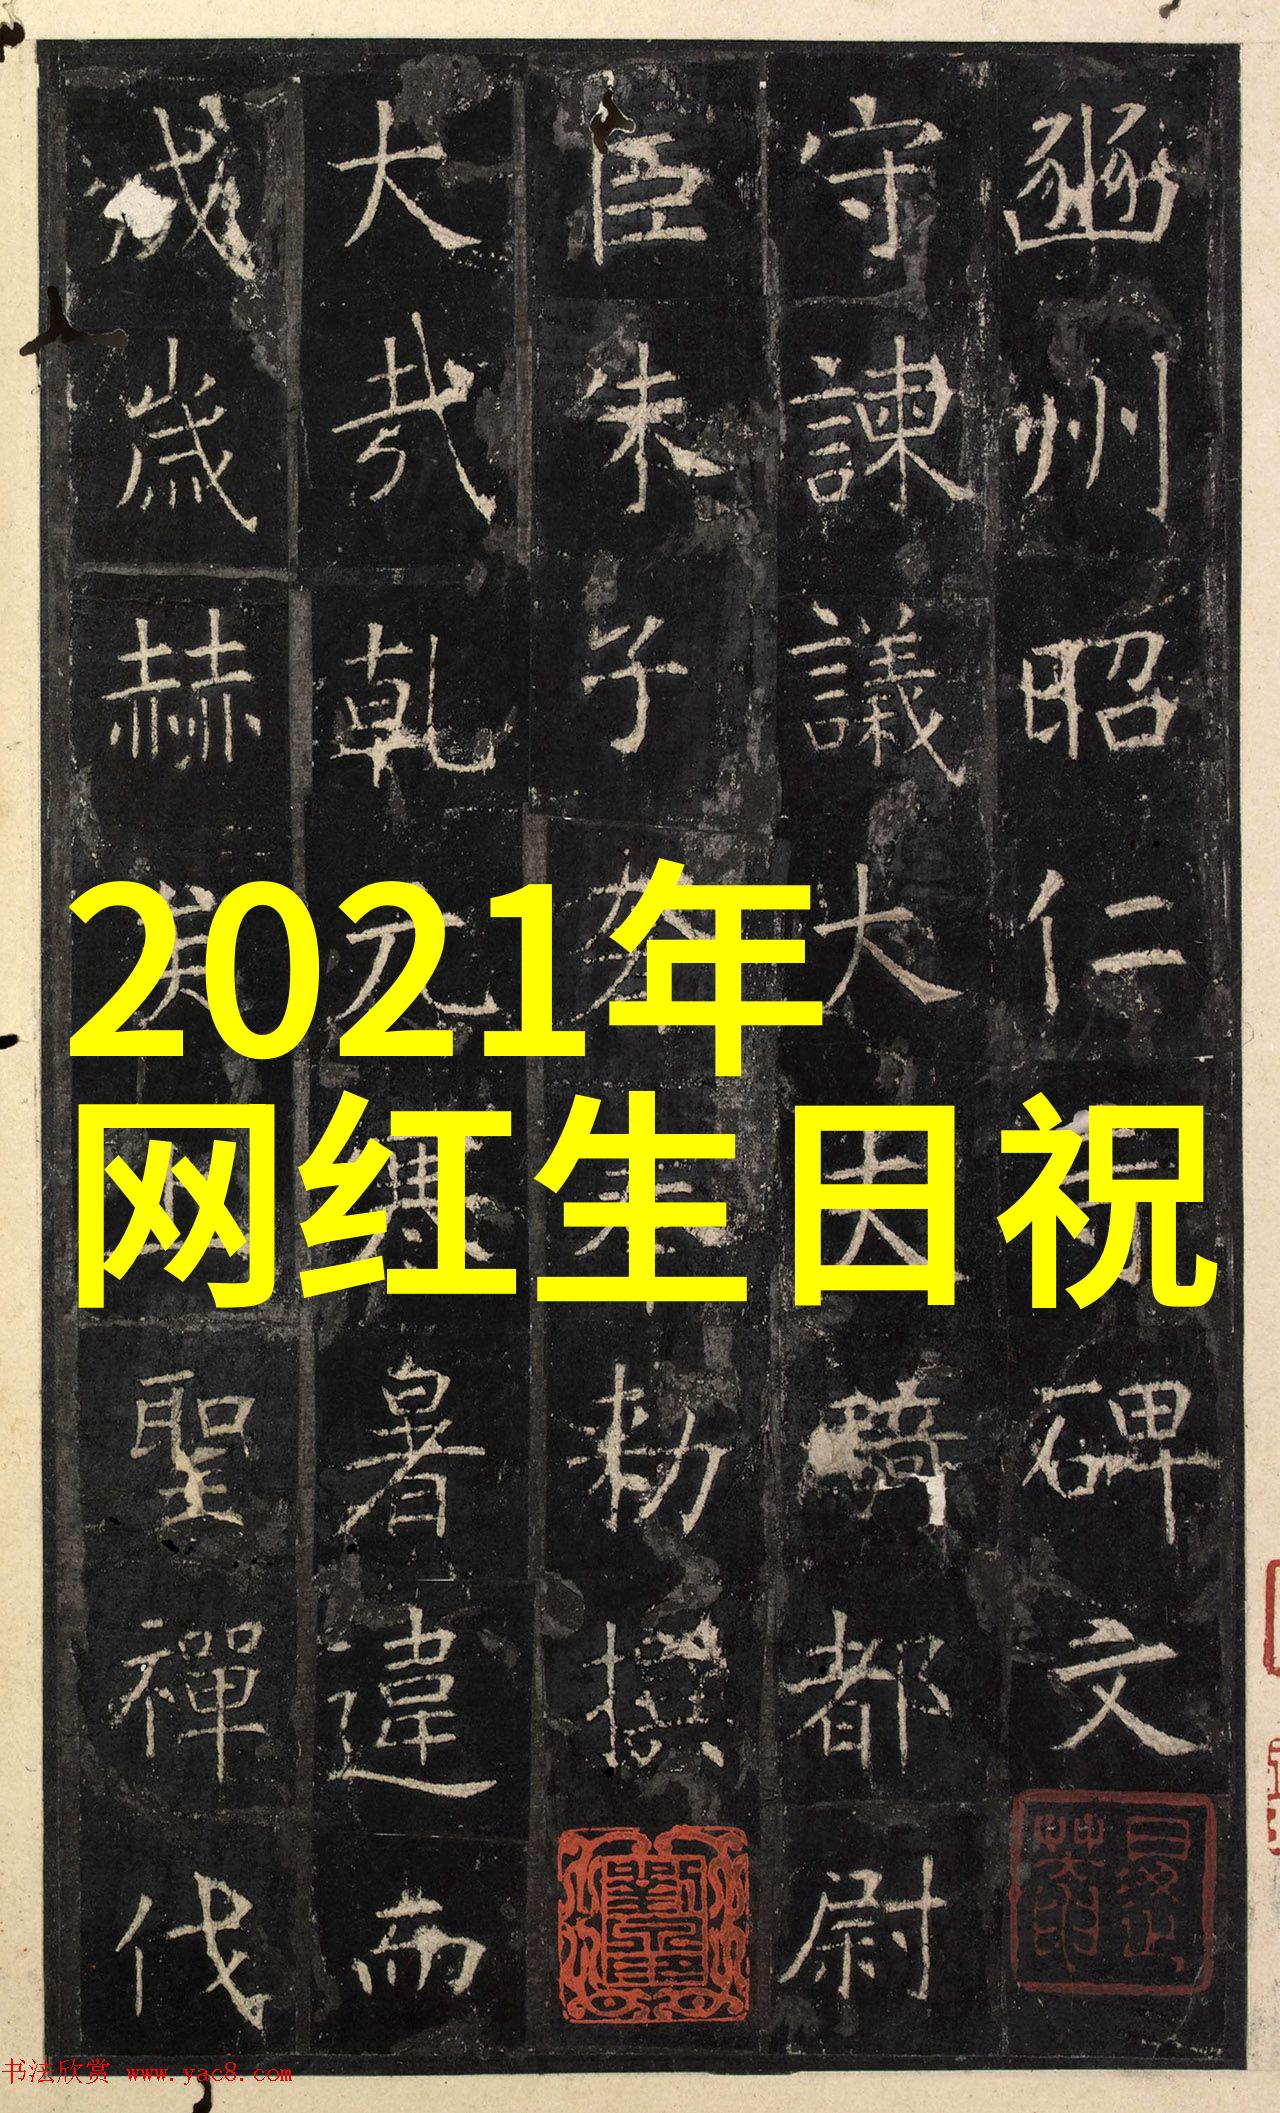 豳州昭仁
碑文
守諫議大夫騎都尉
臣朱子奢奉敕撰
大哉乾元寒暑違而
成歲赫矣
聖禪代
2021年
网红生日祝
书法欣赏 www.yac8.com